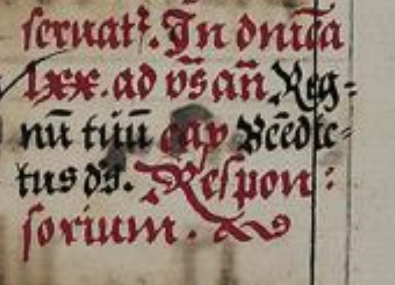 seruat᷑. In dn̄ica
lxx. ad vs̄ an̄ Reg-
nū tuū cap Bn̄edic-
tus ds. Respon:
sorium.